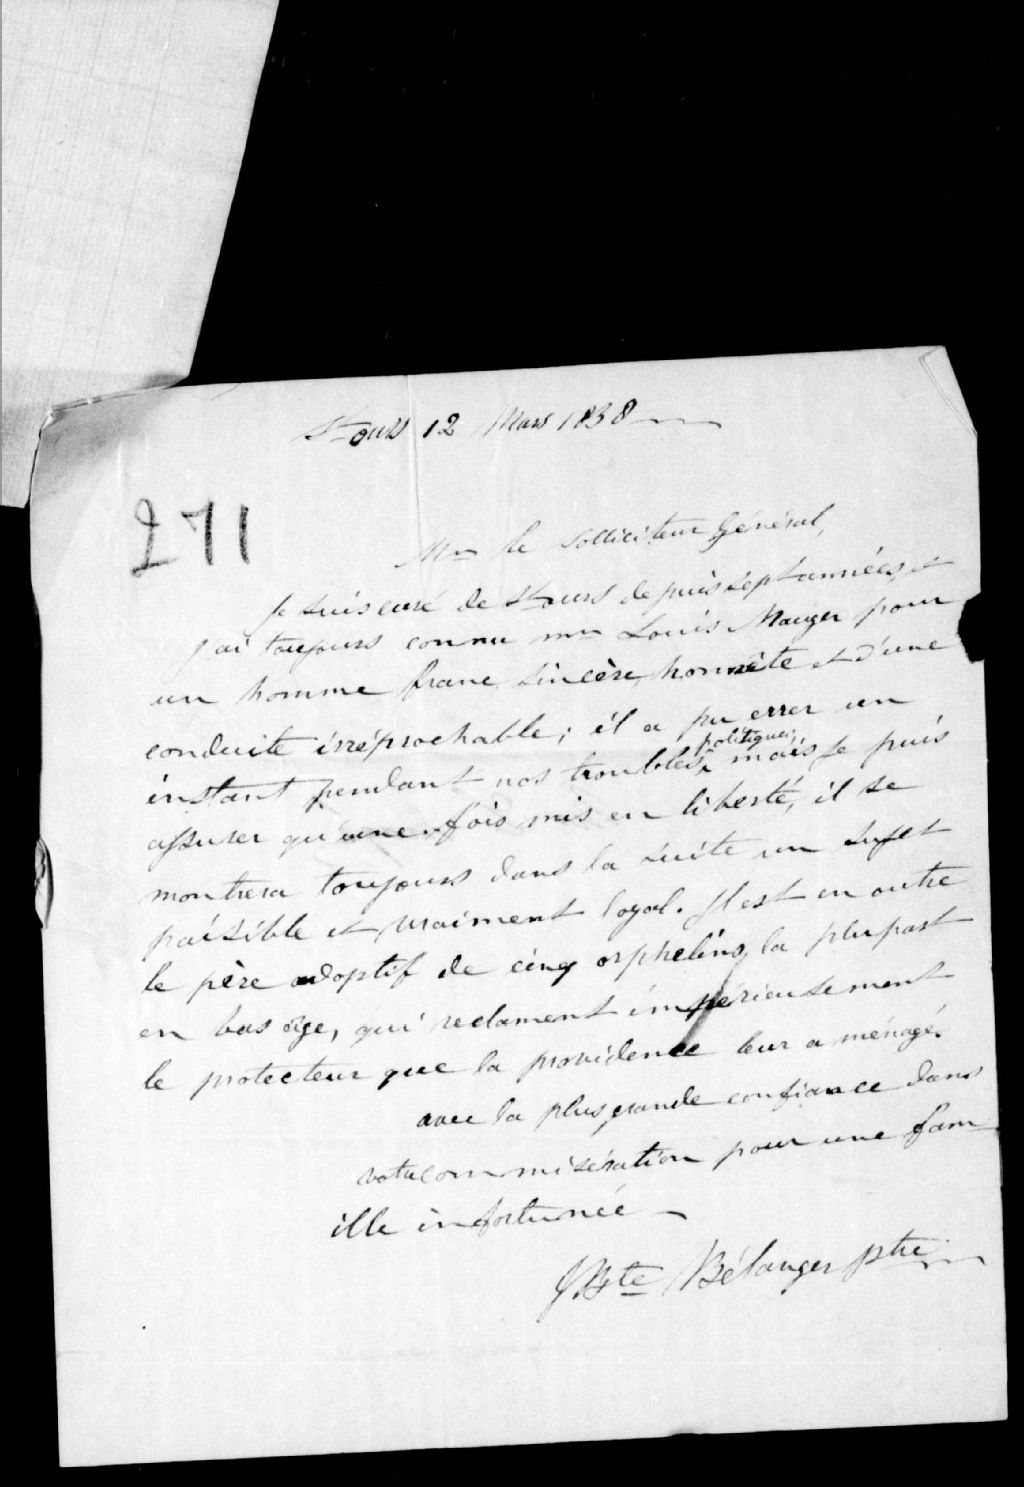 St ours 12 Mars 1838
271
Mr le Solliciteur Général,
Je suis curé de St ours depuis sept années, et
j'ai toujours connu mr Louis Mauger pour
un homme franc, sincère, honnête et d'une
conduite irréprochable; il a pu errer un
instant pendant nos troubles politiques; mais je puis
assurer qu'une fois mis en liberté, il se
montrera toujours dans la suite un sujet
paisible et vraiment loyal. Il est en outre
le père adoptif de cinq orphelins, la plupart
en bas âge, qui reclament impérieusement
le protecteur que la providence leur a ménagé.
avec la plus grande confiance dans
votre commisération pour une fam
ille infortunée
JBte Bélanger ptre